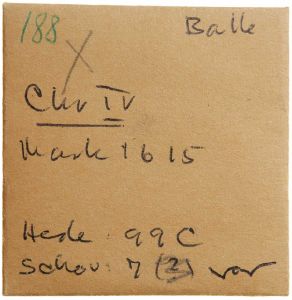 188 Balle
X
Chr IV
Mark 1615
Hede 99 C
Schou 7 (2) var